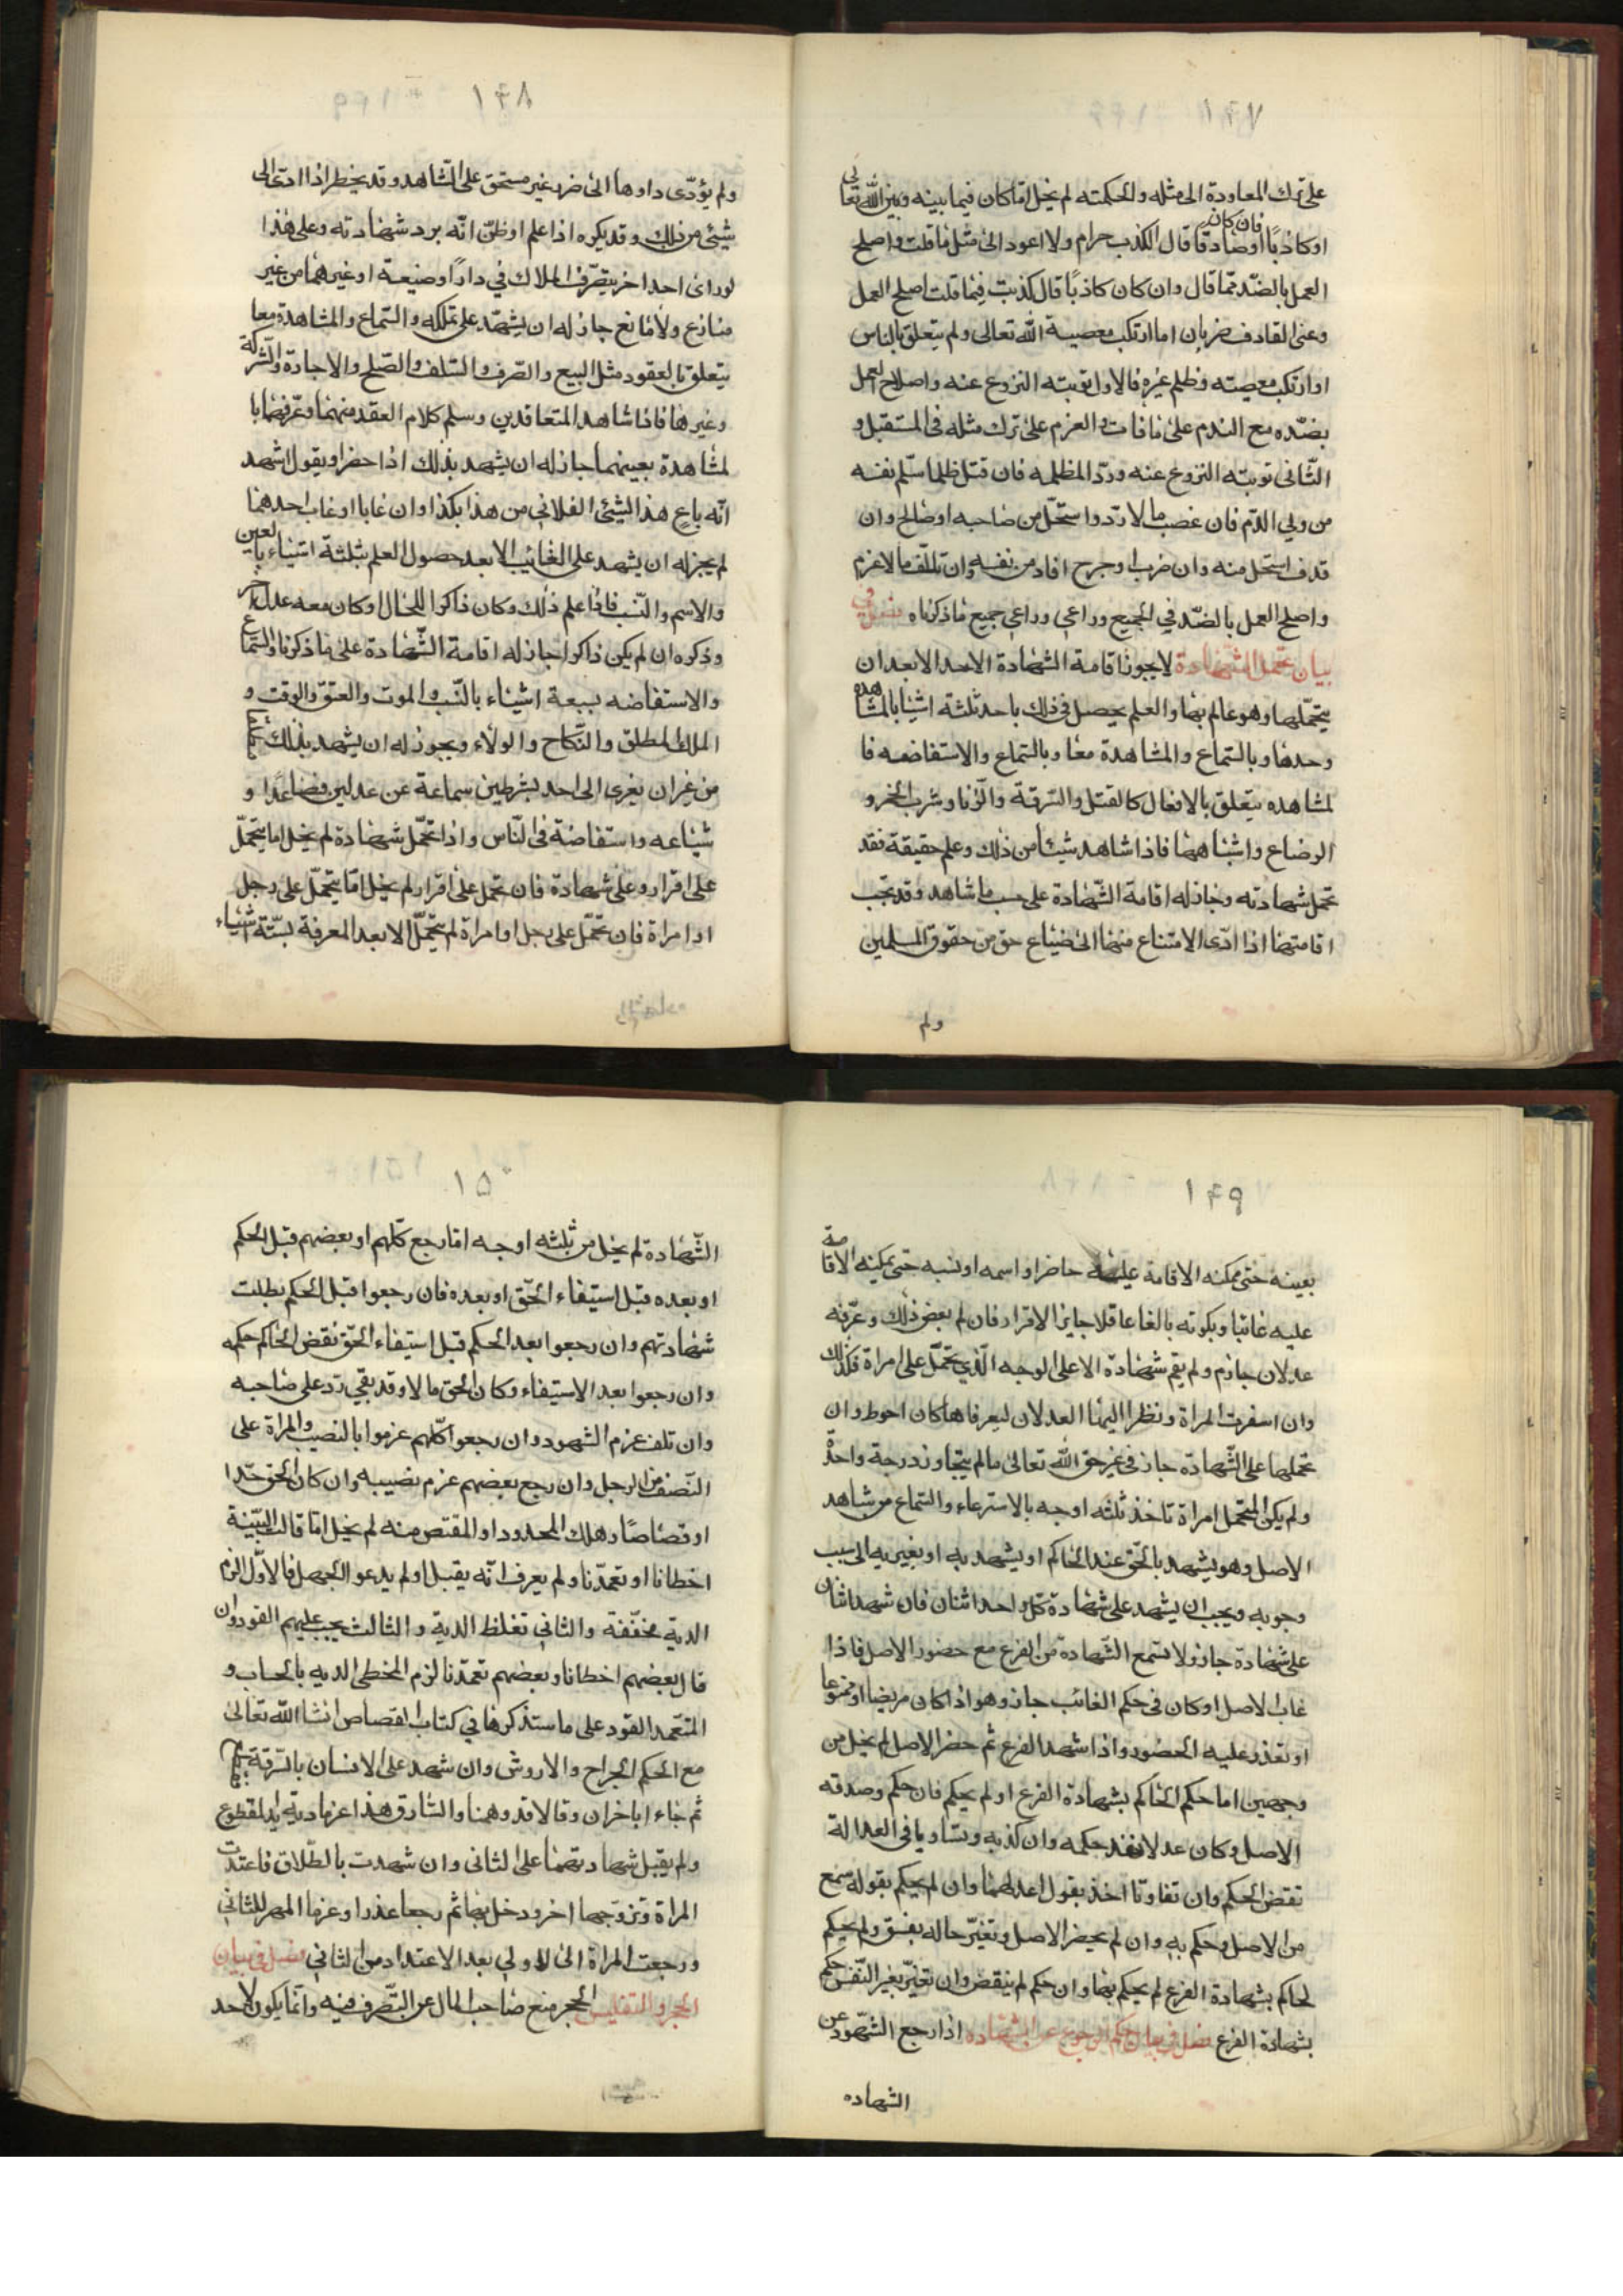 ١٤٧
على ترك المعاودة الى مثله ولحكمته لم يخل اما كان فيما بينه وبين الله تعالى
اوكاذبًا اوصادقا فان كان قال الكذب حرام ولا اعود الى مثل ما قلت واصلح
العمل بالضد مما قال وان كان كاذبًا قال كذبت فيما قلت اصلح العمل
وعنى القاذف ضربان اما ارتكب معصية الله تعالى ولم يتعلق بالناس
اوارتكب معصيته وظلم غيره فالاول توبته النزوع عنه واصلاح العمل
بضده مع الندم على ما فات والعزم على ترك مثله فى المستقبل و
الثانى توبته النزوع عنه وردّ المظلمه فان قتل ظلما سلم نفسه
من ولي الدم فان غصب مالا ردّ واستحل من صاحبه اوصالح وان
قذف استحل منه وان ضرب اوجرح اقاد من نفسه وان تلف مالا غرم
واصلح العمل بالضد في الجميع وراعي وراعي جميع ما ذكرناه فصل في
بيان تحمل الشهادة لا يجوز اقامة الشهادة الاحد الا بعد ان
يتحملها وهو عالم بها والعلم يحصل فى ذلك باحد ثلثة اشيا بالمشاهده
وحدها وبالسماع والمشاهدة معا وبالسماع والاستفاضه فا
لمشاهده يتعلق بالافعال كالقتل والسرقة والزنا وشرب الخمر و
الرضاع واشباههما فاذا شاهد شيئا من ذلك وعلم حقيقة فقد
تحمل شهادته وجاز له اقامة الشهادة على حسب ما شاهد وقد تجب
اقامتها اذا ادى الامتناع منها الى ضياع حق من حقوق المسلمين
ولم
١٤٨
ولم يؤدى داوها الى ضرر غير مستحق على الشاهد وقد يخطر اذا ادى الى
شيئ من ذلك وقد يكره اذا علم اوظن انه يرد شهادته وعلى هذا
لوراى احدا خر يتصرف الملاك في دارًا وضيعة اوغيرهما من غير
منازع ولا مانع جاز له ان يشهد على تملكه والسماع والمشاهدة معا
يتعلق بالعقود مثل البيع والصرف والسلف والصلح والاجارة والشركة
وغيرها فاذا شاهد المتعاقدين وسلم كلام العقد منهما وعرفهما با
لمشاهدة بعينهما جاز له ان يشهد بذلك اذا حضرا ويقول اشهد
انه باع هذا الشيئ الفلاني من هذا بكذا وان غابا اوغاب احدهما
لم يجز له ان يشهد على الغائب الا بعد حصول العلم بثلثة اشياء بالعين
والاسم والنسب فاذا علم ذلك وكان ذاكرا للحال اوكان معه عدل اخر
وذكره ان لم يكن ذاكرا جاز له اقامة الشهادة على ما ذكرنا والسماع
والاستفاضه بسبعة اشياء بالنسب والموت والعتق والوقت و
الملك المطلق والنكاح والولاء ويجوز له ان يشهد بذلك
من غيران يغرى الى احد بشرطين سماعة عن عدلين فصاعدًا و
شياعه واستفاضة فى الناس واذا تحمل شهادة لم يخل اما يتحمل
على اقرار وعلى شهادة فان تحمل على اقرار لم يخل اما يتحمل على رجل
اوامراة فان تحمل على رجل اوامراة لم يتحمل الا بعد المعرفة بستة اشياء
١٤٩
بعينه حتى يمكنه الاقامة عليه حاضرا واسمه اونسبه حتى يمكنه الاقامة
عليه غائبا وبكونه بالغا عاقلا جايز الاقرار فان لم بعض ذلك وعرفه
عدلان جازم ولم يقم شهادة الا على الوجه الذي يتحمل على امراة فكذلك
وان اسفرت المراة ونظرا اليها العدلان ليعرفاها كان احوط وان
تحملها على الشهادة جاز فى غير حق الله تعالى مالم يتجاوز درجة واحدة
ولم يكن المتحمل امراة تاخذ ثلثه اوجه بالاسترعاء والسماع من شاهد
الاصل وهو يشهد بالحق عند الحاكم اويشهد به اوبغيريه الى سبب
وجوبه ويجب ان يشهد على شهادة كل واحد اثنان فان شهد اثنان
على شهادة جاز ولا تسمع الشهادة من الفرع مع حضور الاصل فاذا
غاب الاصل اوكان فى حكم الغائب جاز وهو اذا كان مريضا اوممنوعا
اوتعذر عليه الحضور واذا شهد الفرع ثم حضر الاصل لم يخل من
وجهين اما حكم الحاكم بشهادة الفرع اولم يحكم فان حكم وصدقه
الاصل وكان عدلا نفذ حكمه وان كذبه وتساويا فى العدالة
نقض الحكم وان تفاوتا اخذ بقول اعدلهما وان لم يحكم بقوله سمع
من الاصل وحكم به وان لم يحضر الاصل وتغير حاله بفسق ولم يحكم
لحاكم بشهادة الفرع لم يحكم بها وان حكم لم ينقض وان تغير بغير الفسق حكم
بشهادة الفرع فصل في بيان حكم الرجوع عن الشهاده اذا رجع الشهود عن
الشهاده
١٥٠
الشهادة لم يخل من ثلثه اوجه اما رجع كلهم اوبعضهم قبل الحكم
اوبعده قبل استيفاء الحق اوبعده فان رجعوا قبل الحكم بطلت
شهادتهم وان رجعوا بعد الحكم قبل استيفاء الحق نقض الحاكم حكمه
وان رجعوا بعد الاستيفاء وكان الحق مالا وقد بقي رد على صاحبه
وان تلف غرم الشهود وان رجعوا كلهم غرموا بالنصيب والمراة على
النصف من الرجل وان رجع بعضهم غرم نصيبه وان كان الحق حدا
اوقصاصًا وهلك المحدود او المقتص منه لم يخل اما قالت البينة
اخطانا اوتعمدنا ولم يعرف انه يقبل اولم يدعوا الجهل فالاول الزم
الدية مخففة والثاني تغلظ الدية والثالث يجب عليهم القود وان
قال بعضهم اخطانا وبعضهم تعمدنا لزم المخطى الديه بالحساب و
المتعمد القود على ما ستذكرها في كتاب القصاص انشاالله تعالى
مع الحكم الجراح والاروش وان شهد على الانسان بالسرقة
ثم جاء اباخران وقالا قد وهمنا والسارق هذا غرما دية يد المقطوع
ولم يقبل شهادتهما على الثانى وان شهدت بالطلاق فاعتدت
المراة وتزوجها اخر ودخل بها ثم رجعا عذرا وغرما المهر للثاني
ورجعت المراة الى الاولي بعد الاعتداد من الثاني فصل فى بيان
الحجر والتفليس الحجر منع صاحب المال عن التصرف فيه وانما يكون لاحد